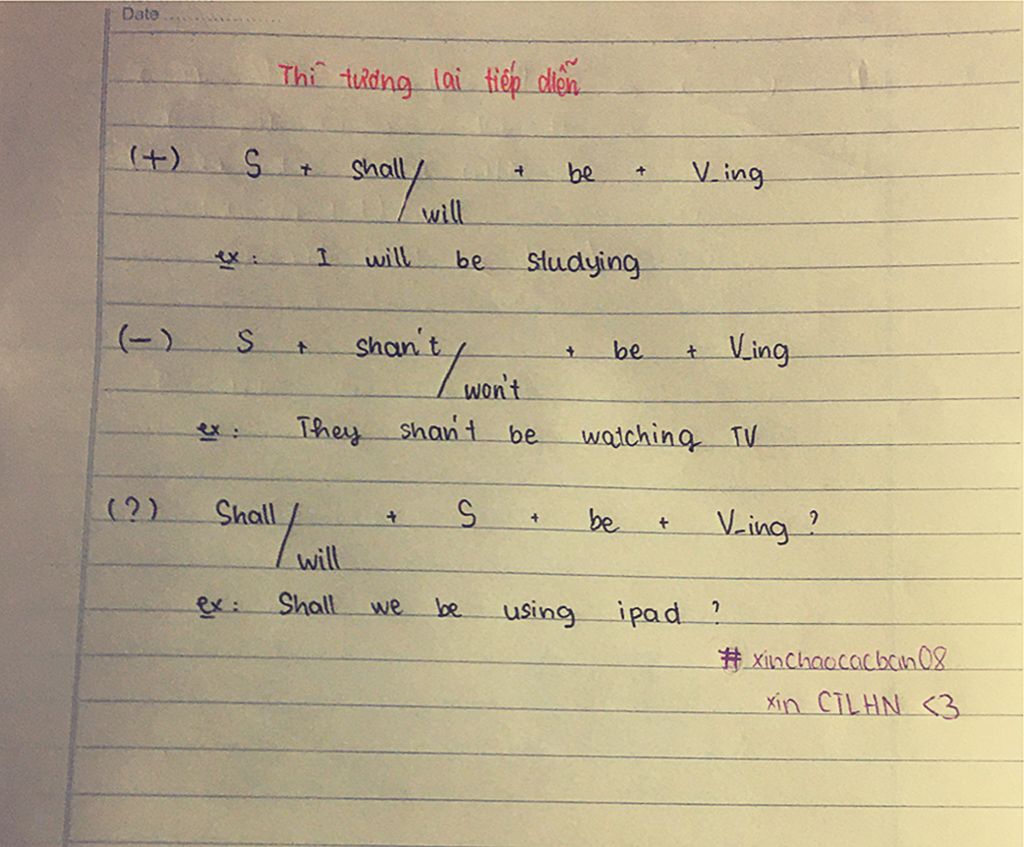 Date
Thì tương lai tiếp diễn
(+) S + shall/will + be + V_ing
ex: I will be studying
(-) S + shan't/won't + be + V_ing
ex: They shan't be watching TV
(?) Shall/will + S + be + V_ing ?
ex: Shall we be using ipad ?
# xinchaocacban08
xin CTLHN <3